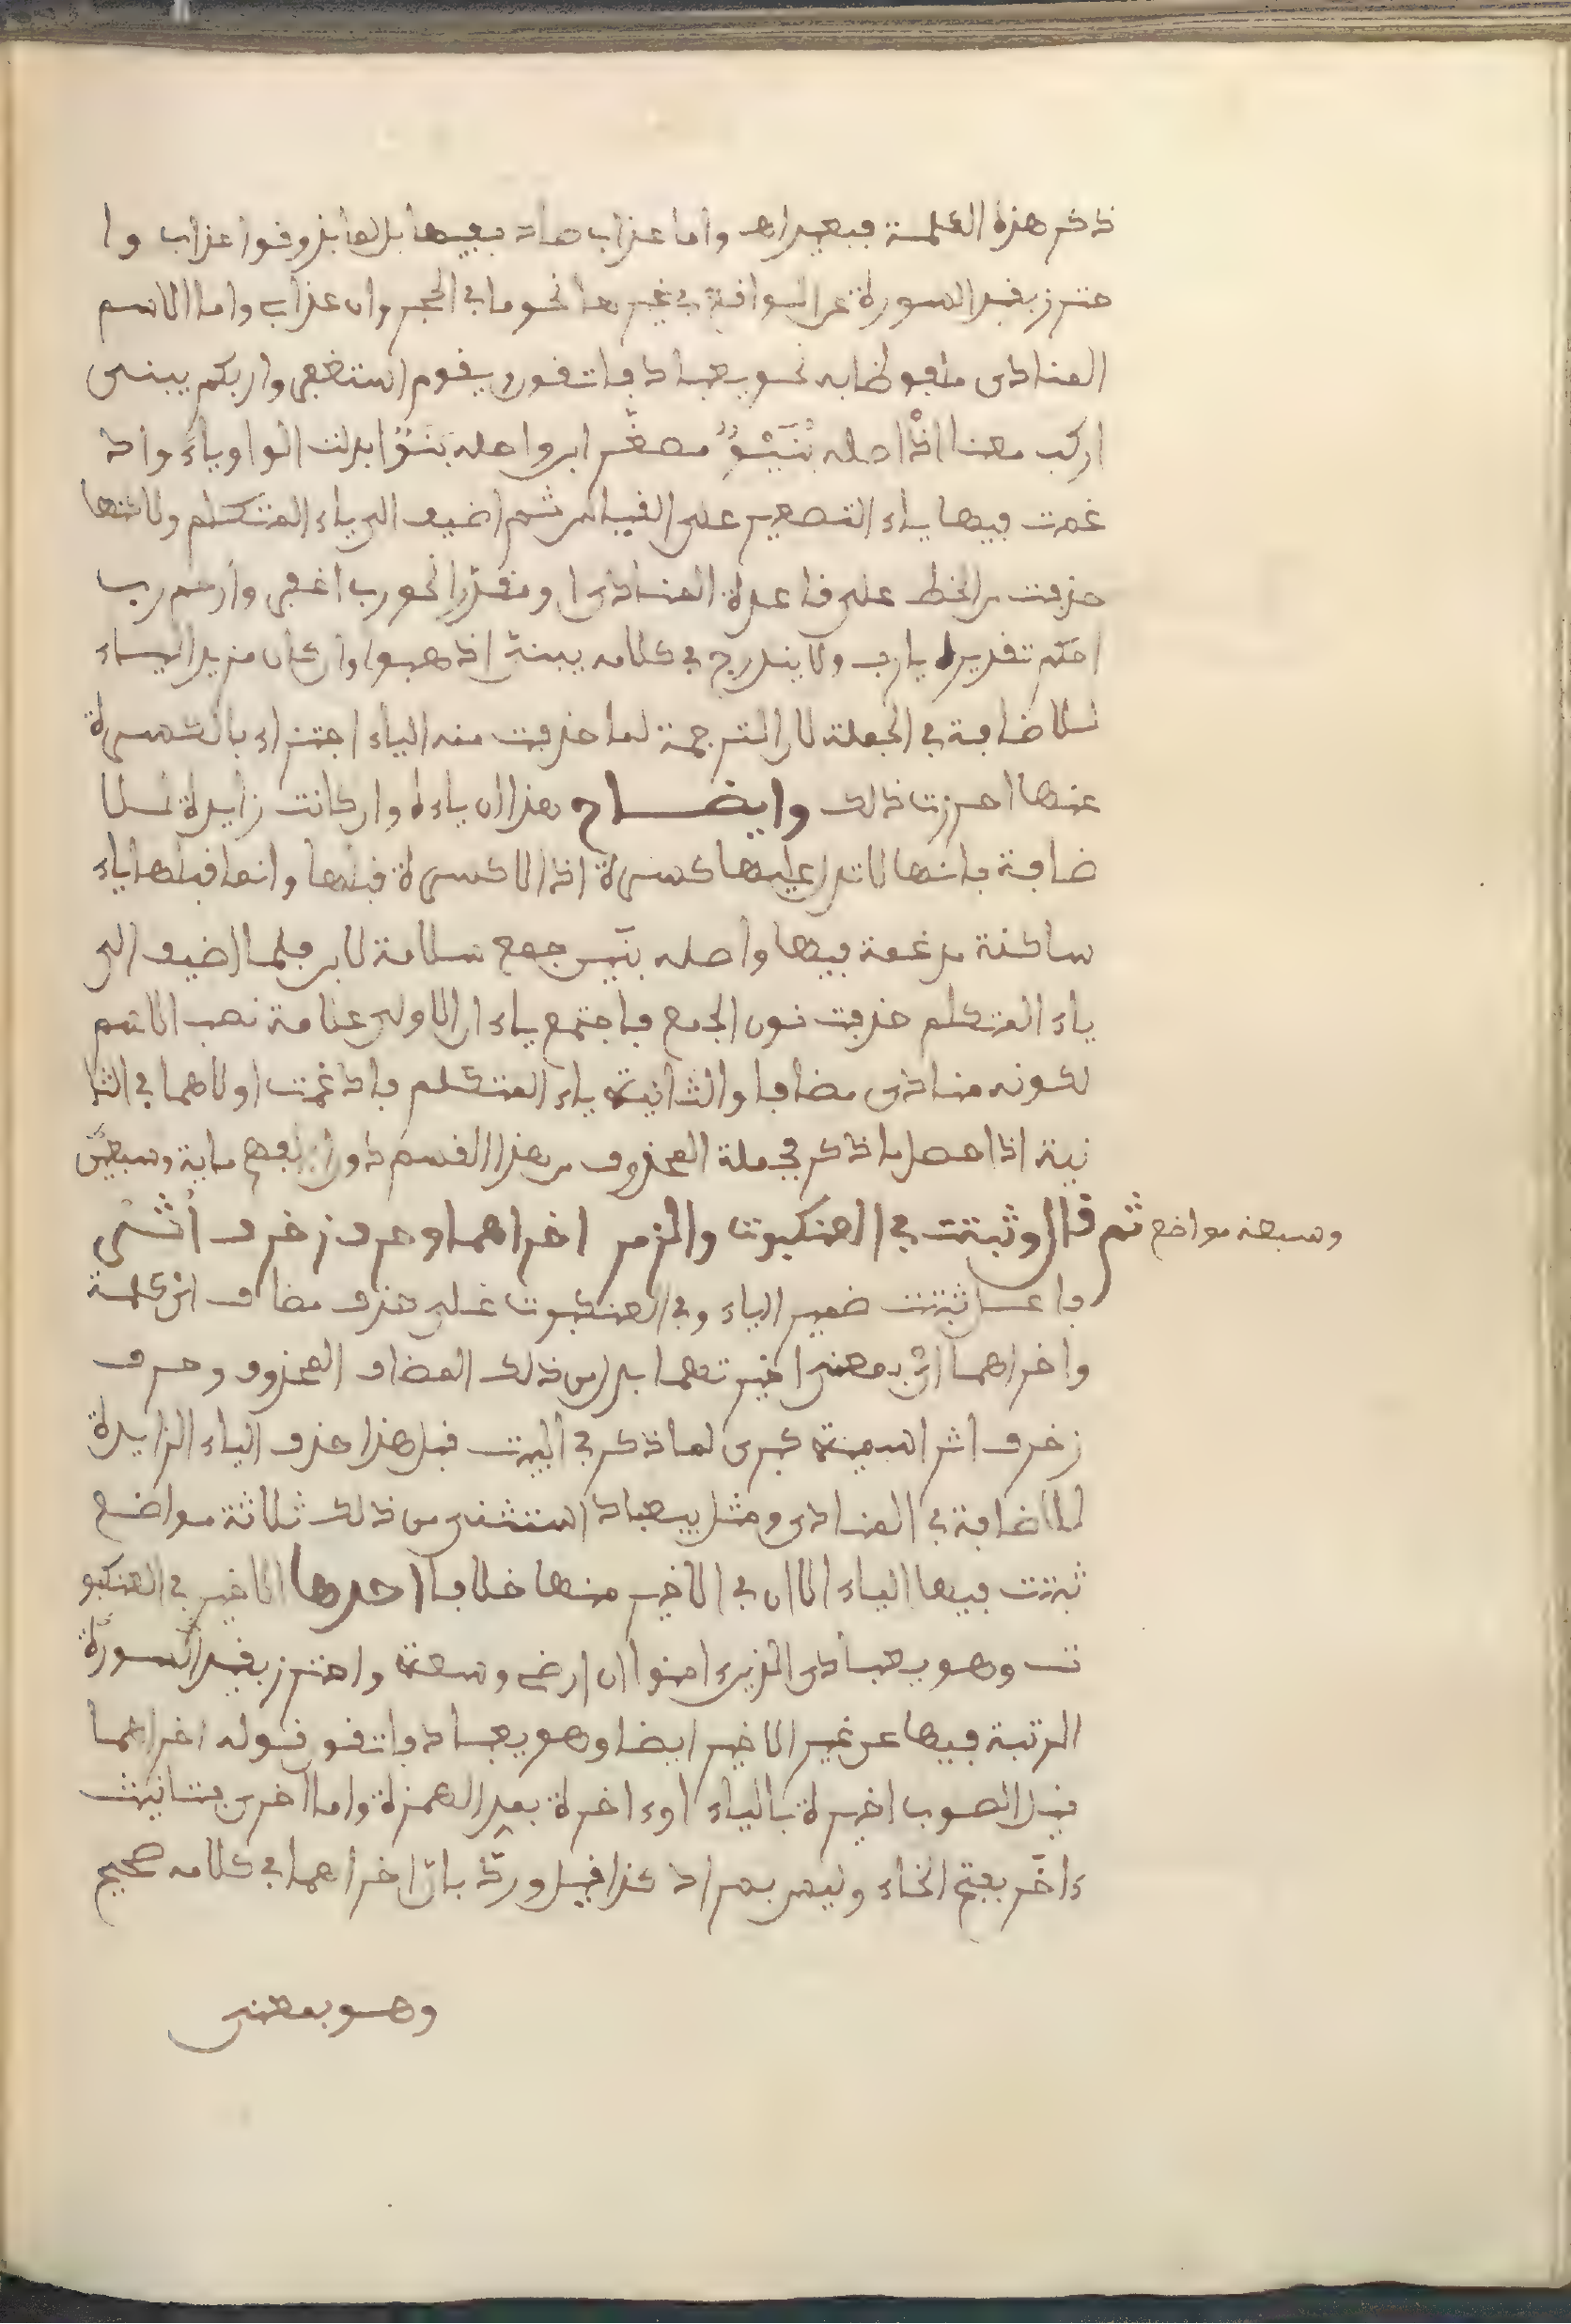 ذكر هذه الكلمة فبعيداهـ واما عذاب صاد ففيها بل لما يذوقوا عذاب وا
حترز بقيد السورة عن الواقع في غيرها نحو ما في الحجر وان عذابي واما الاسم
المنادى ملفوظا به نحو يعباد فاتقون ويقوم استغفروا ربكم يبنى
اركب معنا اذ اصله بُنَيْوٌ مصغر ابن واصله بَنَوٌ ابدلت الواو ياء واد
غمت فيها ياء التصغير على القياس ثم اضيف الى ياء المتكلم ولاكنها
حذفت من الخط على قاعدة المنادى او مقدرا نحو رب اغفر وارحم رب
احكم تقديره يارب ولا يندرج في كلامه يبنيّ اذهبوا وان كان مزيد الياء
للاضافة في الجملة لان الترجمة لما حذفت منه الياء اجتزاء بالكسرة
عنها احرزت ذلك وايضاح هذا ان ياءه وان كانت زايدة للا
ضافة فانها لا تدل عليها كسرة اذ لا كسرة قبلها وانما قبلها ياء
ساكنة مدغمة فيها واصله بنين جمع سلامة لابن فلما اضيف الى
ياء المتكلم حذفت نون الجمع فاجتمع ياءان الاولى علامة نصب الاسم
لكونه منادى مضافا والثانية ياء المتكلم فادغمت اولاهما في الثا
نية اذا حصل ما ذكر فجملة المحذوف من هذا القسم دون بفهم ماية وسبعين
وسبعة مواضع ثم قال وثبتت في العنكبوت والزمر اخراهما وحرف زخرف اثنى
فاعل ثبتت ضمير الياء وفي العنكبوت على حذف مضاف اي كلمة
واخراهما اي بمعنى اخيرتهما بدل من ذلك المضاف المحذوف وحرف
زخرف اثر اسمية كبرى لما ذكر في البيت قبل هذا حذف الياء الزايدة
للاضافة في المنادى ومثل بيعباد استثنى من ذلك ثلاثة مواضع
ثبتت فيها الياء الا ان في الاخير منها خلافا احدها الاخير في العنكبو
ت وهو يعبادى الذين ءامنوا ان ارضي وسعة واحترز بقيد السورة
المرتبة فيها عن غير الاخير ايضا وهو يعباد فاتقون قوله اخراهما
قيل الصوب اخيرة بالياء او ءاخرة بمد الهمزة واما اخرى فتانيث
ءاخَر بفتح الخاء وليس بمراد كذا قيل ورُدّ بان اخراهما في كلامه صحيح
وهو بمعنى